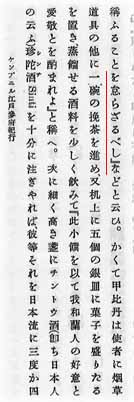 稱ふることを怠らざるべし』などと云ひ。かくて甲比丹は使者に烟草
道具の他に一碗の挽茶を進め又机上に五個の銀皿に菓子を盛りたる
を置き蒸餾せる酒料を少しく飮みて『此小饌を以て我和蘭人の好意と
愛敬とを酌まれよ』と稱へ。次に細く高き盞にチントウ酒（即ち日本人
の云ふ珍陀酒 Sindi）を十分に注ぎやれば彼等それを日本流に三度か四
ケンプエル江戸參府紀行